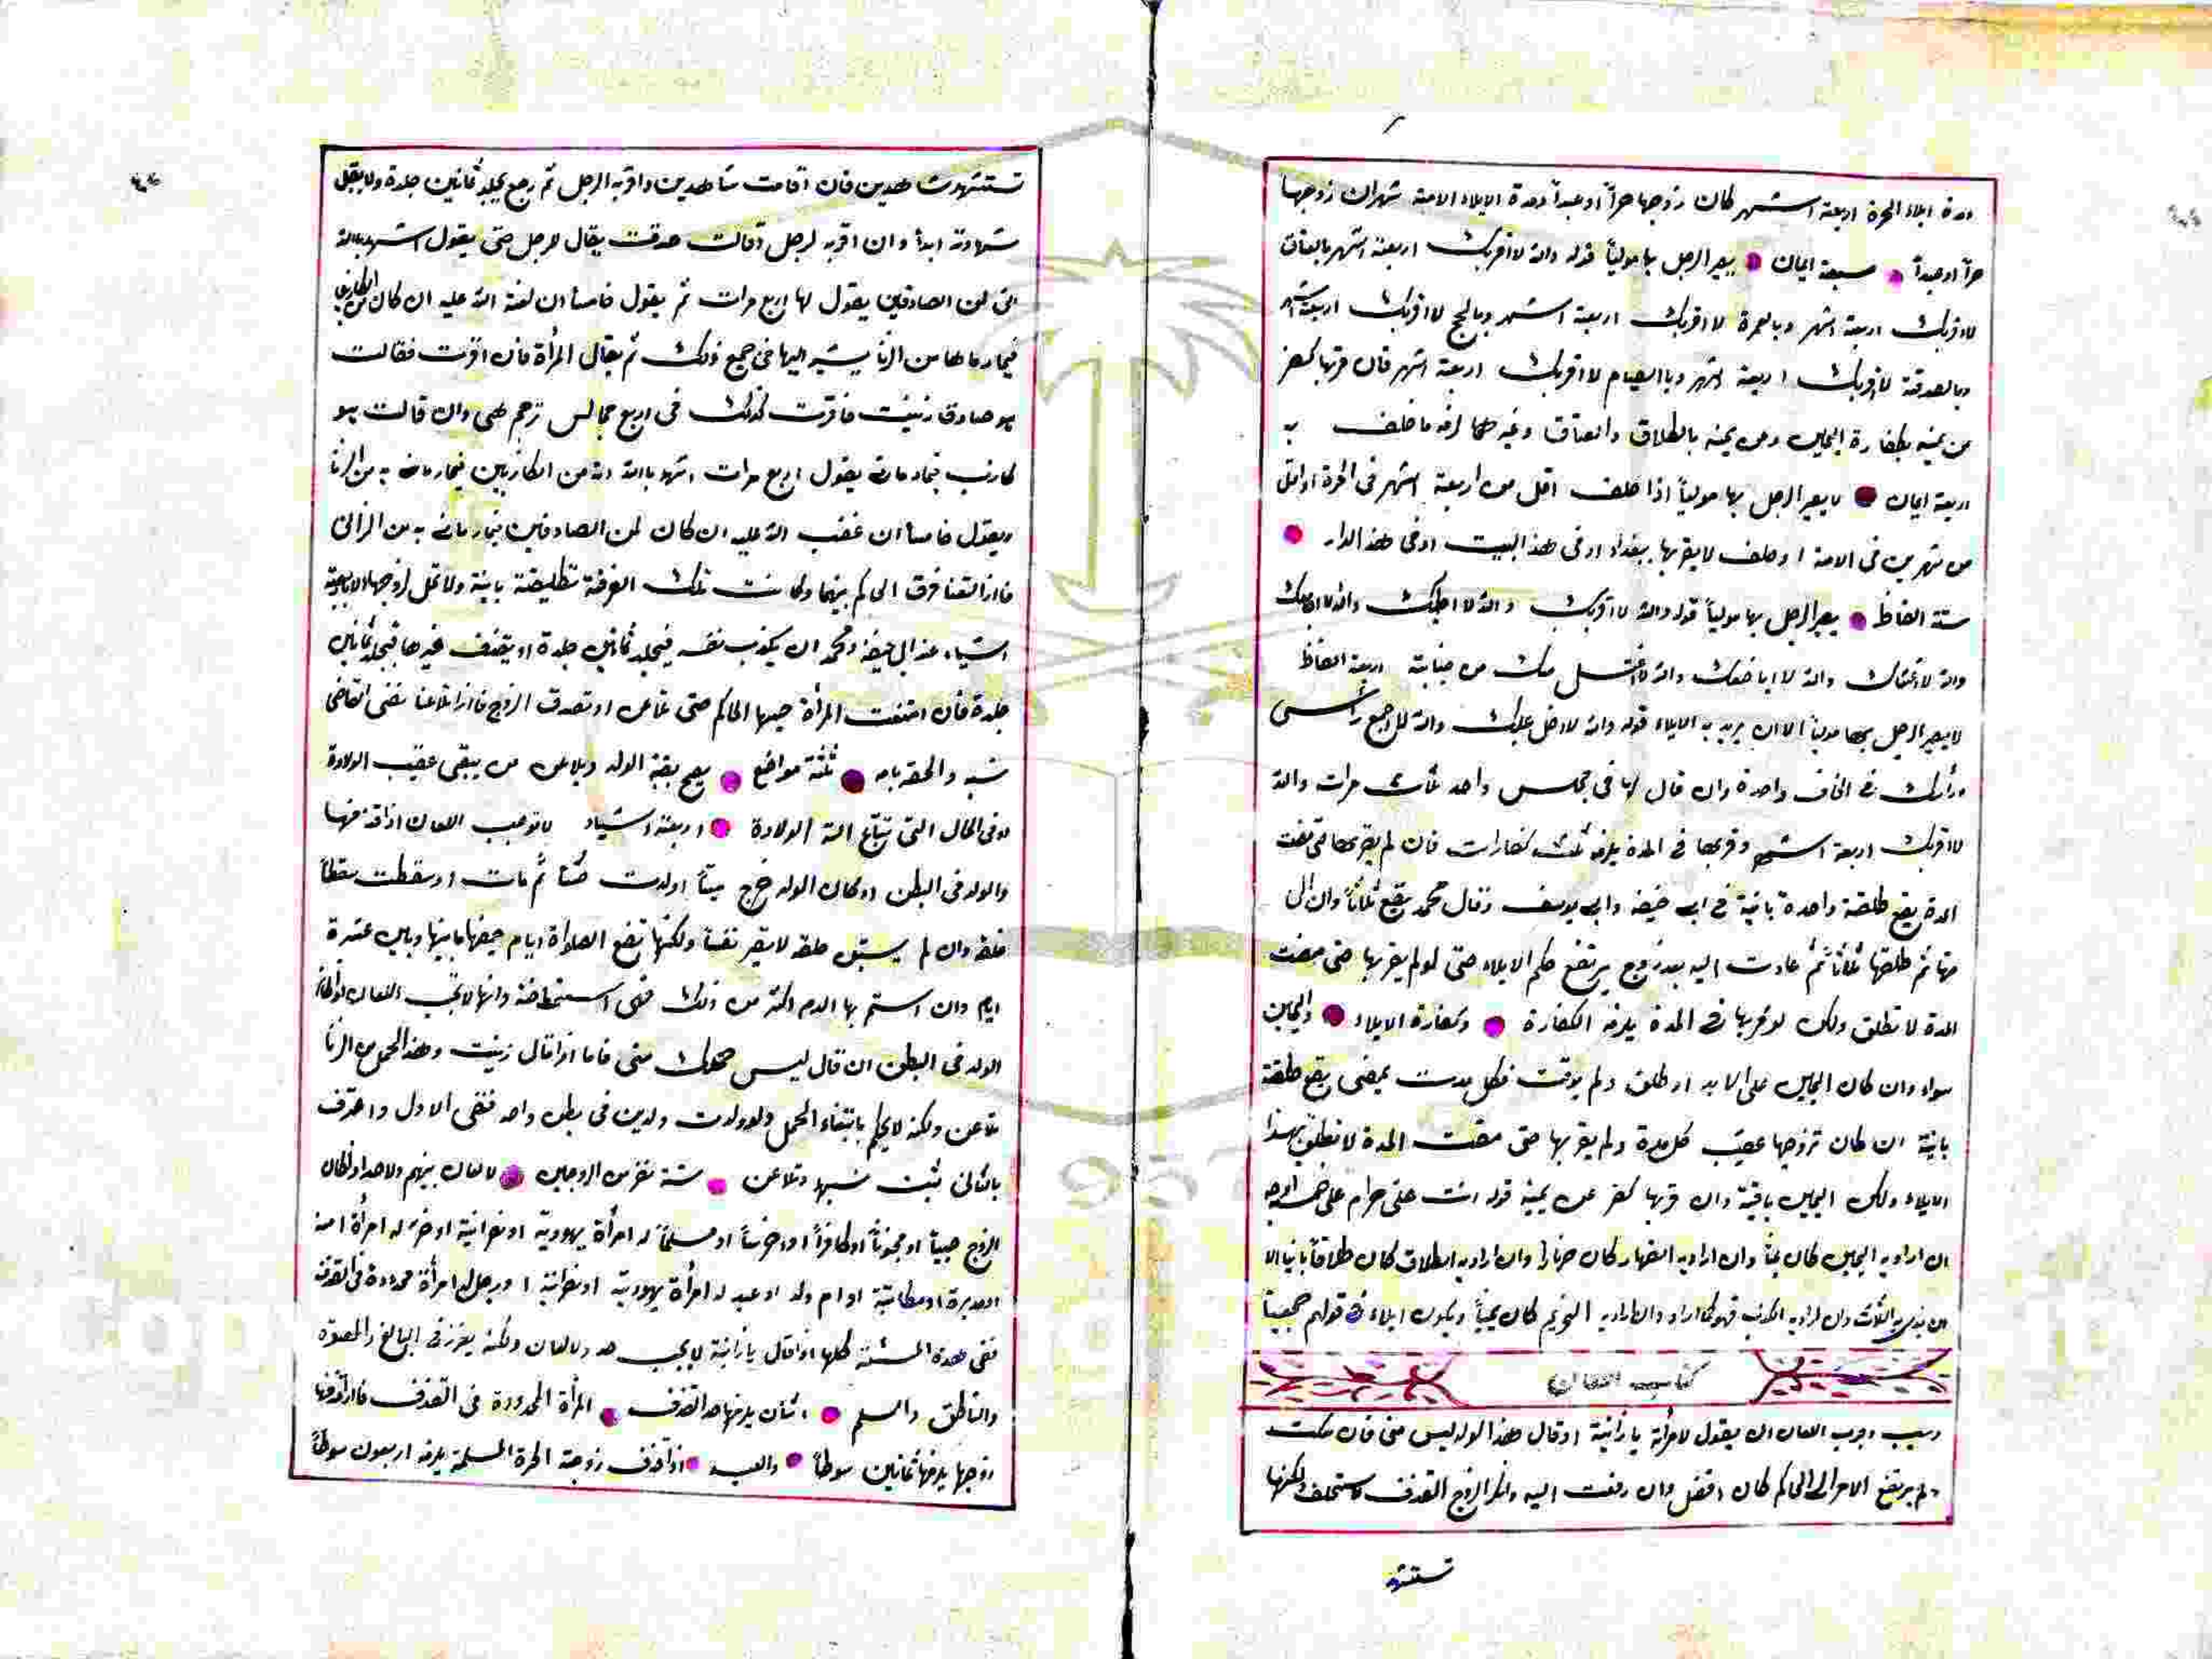 ومدة ايلاء الحرة اربعة اشهر كان زوجها حراً او عبداً ومدة الايلاء الامة شهران زوجها
حراً او عبداً سبعة ايمان يصير الرجل بها مولياً قوله والله لا اقربك اربعة اشهر بالعتاق
لا اقربك اربعة اشهر وبالعمرة لا اقربك اربعة اشهر وبالحج لا اقربك اربعة اشهر
وبالصدقة لا اقربك اربعة اشهر وبالصيام لا اقربك اربعة اشهر فان قربها كفر
من يمينه بكفارة اليمين ومن يمينه بالطلاق والعتاق وغيرهما لزمه ما حلف به
اربعة ايمان لا يصير الرجل بها مولياً اذا حلف اقل من اربعة اشهر فى الحرة او اقل
من شهرين فى الامة او حلف لا يقربها ببغداد او فى هذا البيت او فى هذا الدار
ستة الفاظ يصير الرجل بها مولياً قوله والله لا اقربك والله لا اطئك والله لا اجامعك
والله لا اغشاك والله لا اباضعك والله لا اغتسل منك من جنابة اربعة الفاظ
لا يصير الرجل بها مولياً الا ان يريد به الايلاء قوله والله لا دخل عليك والله لا اجمع رأسى
ورأسك فى لحاف واحدة وان قال لها فى مجلس واحد ثلث مرات والله
لا اقربك اربعة اشهر وقربها فى المدة يلزمه ثلث كفارات فان لم يقربها حتى مضت
المدة يقع طلقة واحدة بائنة فى ابى حنيفة وابى يوسف وقال محمد يقع ثلاثاً وان الى
منها ثم طلقها ثلاثاً ثم عادت اليه بعد زوج يرتفع حكم الايلاء حتى لو لم يقربها حتى مضت
المدة لا تطلق ولكن لو قربها فى المدة يلزمه الكفارة وكفارة الايلاء واليمين
سواء وان كان اليمين على الابد او طلق ولم يوقت فكل مدت يمضى يقع طلقة
بائنة ان كان تزوجها عقيب كل مدة ولم يقربها حتى مضت المدة لا تطلق بهذا
الايلاء ولكن اليمين باقية وان قربها كفر عن يمينه قوله انت على حرام على خمسة اوجه
ان اراد به اليمين كان يميناً وان اراد به الظهار كان ظهارا وان اراد به الطلاق كان طلاقاً بائنا الا
ان ينوى به الثلث وان اراد به الكذب فهو كما اراد وان اراد به التحريم كان يميناً ويكون ايلاء فى قولهم جميعاً
كتاب اللعان
وسبب وجوب اللعان ان يقول لامرأته يا زانية او قال هذا الولد ليس منى فان سكت
ولم يرتفع الامر الى الحاكم كان افضل وان رفعت اليه وانكر الزوج القذف لا يستحلف ولكنها
تستشهد
تستشهدت شاهدين فان اقامت شاهدين او اقر به الرجل ثم رجع يجلد ثمانين جلدة ولا يقبل
شهادته ابدا وان اقر به لرجل وقالت صدقت يقال لرجل حتى يقول اشهد بالله
انى لمن الصادقين يقول لها اربع مرات ثم يقول خامسا ان لعنة الله عليه ان كان من الكاذبين
فيما رماها من الزنا يشير اليها فى جميع ذلك ثم يقال المرأة فان اقرت فقالت
هو صادق زنيت فاقرت كذلك فى اربع مجالس ترجم هى وان قالت هو
كاذب فيما رمانى يقول اربع مرات اشهد بالله انه من الكاذبين فيما رمانى به من الزنا
ويقول خامسا ان غضب الله عليه ان كان لمن الصادقين فيما رمانى به من الزانى
فاذا التعنا فرق الحاكم بينهما وكانت تلك الفرقة تطليقة بائنة ولا تحل لزوجها الا باربعة
اشياء عند ابى حنيفة ومحمد ان يكذب نفسه فيجلد ثمانين جلدة او يقذف غيرها فيجلد ثمانين
جلدة فان امتنعت المرأة حبسها الحاكم حتى تلاعن او تصدق الزوج فاذا تلاعنا نفى القاضى
نسبه والحقه بامه ثلثة مواضع يصح بقية الولد ويلاعن من يبقى عقيب الولادة
او فى الحال التى تبتاع الة الولادة اربعة اشياء لا توجب اللعان اذا قذفها
والولد فى البطن او كان الولد خرج ميتاً او ولدت حيا ثم مات او سقطت سقطاً
خلقه وان لم يستبن خلقه لا يتصير نفساً ولكنها تضع الصلوة ايام حيضها ما بينها وبين عشرة
ايام وان استمر بها الدم اكثر من ذلك فهى استحاضة وانها لا تجب اللعان لو كان
الولد فى البطن ان قال ليس حملك منى فاما اذا قال زنيت وهذا الحمل من الزنا
تلاعن ولكنه لا يحكم بانتفاء الحمل ولو ولدت ولدين فى بطن واحد فنفى الاول واعترف
بالثانى ثبت نسبهما وتلاعن ستة نفر من الزوجين لا لعان بينهم ولا حد اذ كان
الزوج صبياً او مجنوناً او كافراً او اخرساً او مسلماً له امرأة يهودية او نصرانية او حر له امرأة امة
او مدبرة او مكاتبة او ام ولد او عبد له امرأة يهودية او نصرانية او رجل له امرأة محدودة فى القذف
ففى هذه الستة كلها اذا قال يا زانية لا يجب حد ولا لعان ولكنه يعزر فى البالغ والمعتوه
والناطق والمسلم اثنان يلزمها حد القذف المرأة المحدودة فى القذف فاذا قذفها
زوجها يلزمها ثمانين سوطاً والعبد اذا قذف زوجة الحرة المسلمة يلزمه اربعون سوطاً